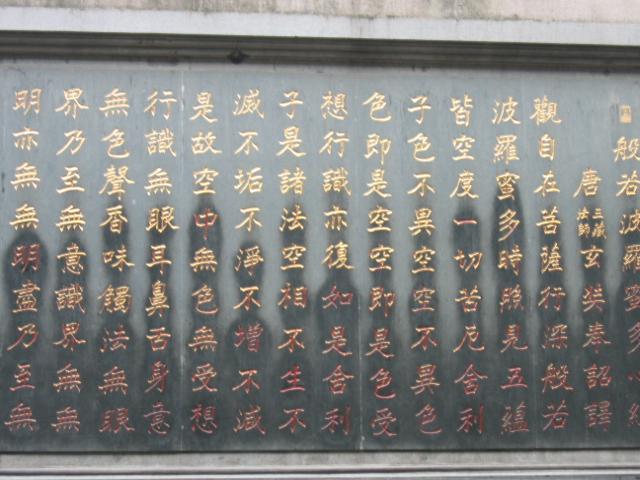 般若波羅蜜多心經
唐三藏法師玄奘奉詔譯
觀自在菩薩行深般若
波羅蜜多時照見五蘊
皆空度一切苦厄舍利
子色不異空空不異色
色即是空空即是色受
想行識亦復如是舍利
子是諸法空相不生不
滅不垢不淨不增不減
是故空中無色無受想
行識無眼耳鼻舌身意
無色聲香味觸法無眼
界乃至無意識界無無
明亦無無明盡乃至無